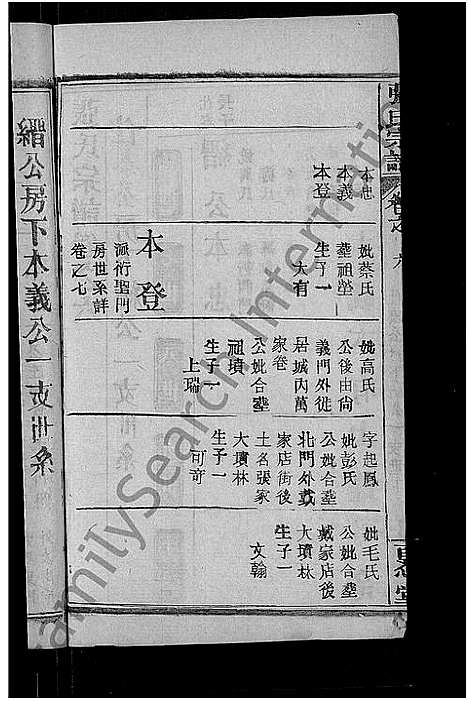 張氏宗譜
卷之 九
百忍堂
本忠
本義
本登
妣蔡氏
葬祖塋
生子一
大有
本登
派衍聖門
房世系詳
卷之七
妣高氏
公後由尙
義門外徙
居城內萬
家巷
公妣合塟
祖墳
生子一
上瑞
字起鳳
妣彭氏
公妣合塟
北門外戴
家店街後
土名張家
大墳林
生子一
可奇
妣毛氏
公妣合塟
戴家店後
大墳林
生子一
文翰
縉公房下本義公一支世系
FamilySearch International